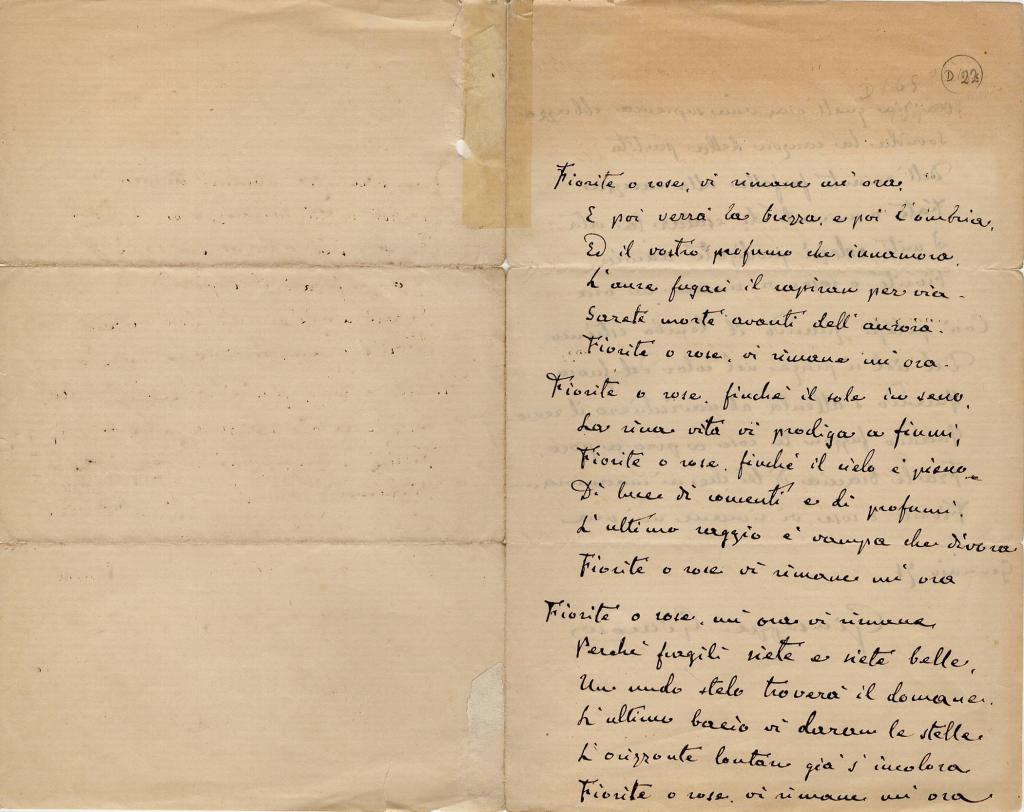 D 22
Fiorite o rose, vi rimane un'ora,
E poi verrà la brezza, e poi l'ombria,
Ed il vostro profumo che innamora,
L'aure fugaci il rapiran per via -
Sarete morte avanti dell'aurora -
Fiorite o rose, vi rimane un'ora -
Fiorite o rose, finchè il sole in seno,
La rima vità vi prodiga a fiumi,
Fiorite o rose, finchè il cielo è pieno
Di luce di concenti e di profumi.
L'ultimo raggio è vampa che divora
Fiorite o rose vi rimane un'ora
Fiorite o rose, un'ora vi rimane
Perchè fragili siete e siete belle,
Un nudo stelo troverà il domane,
L'ultimo bacio vi daran le stelle
L'orizzonte lontan già s'incolora
Fiorite o rose, vi rimane un'ora